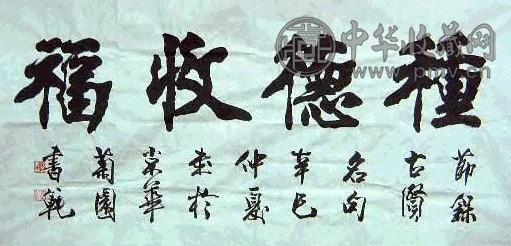 種德收福
節錄
古賢
名句
辛巳
仲夏
於
華
菊園
書範
中华收藏网
www.pmv.cn